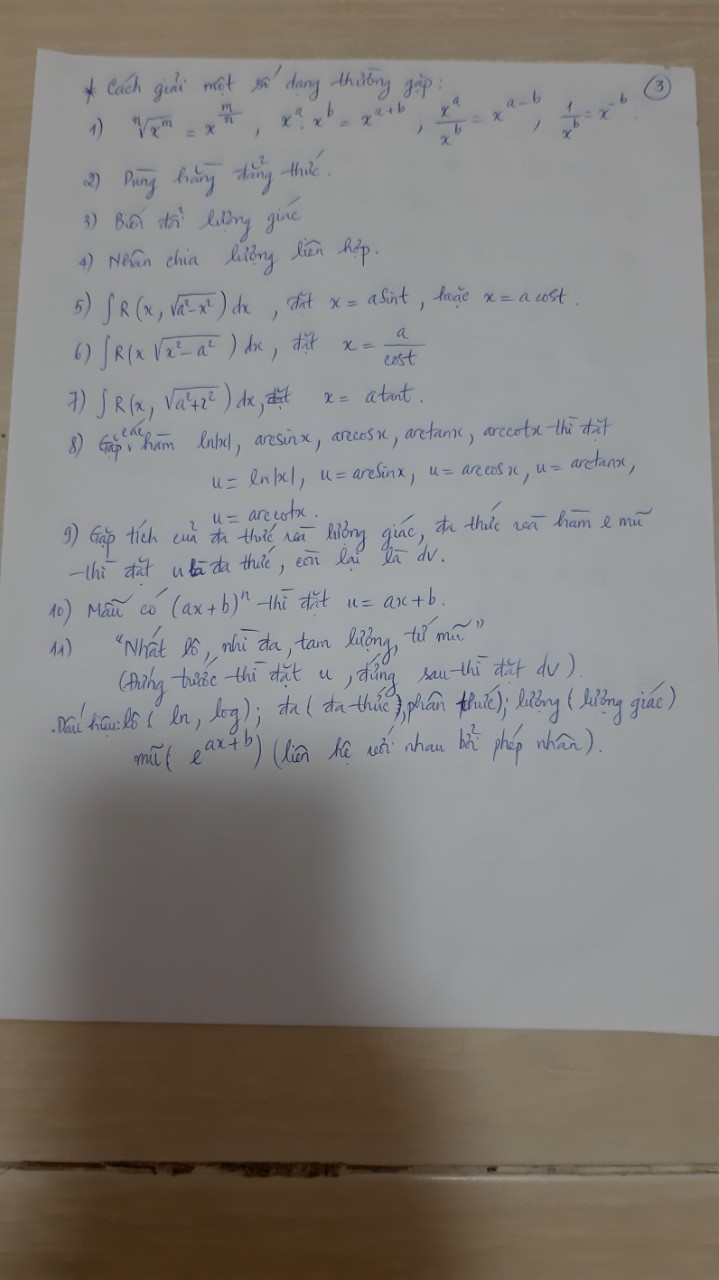 * Cách giải một số dạng thường gặp: ③
1) ⁿ√(x^m) = x^(m/n) , x^a . x^b = x^(a+b) , x^a / x^b = x^(a-b) , 1/x^b = x^(-b) .
2) Dùng hằng đẳng thức.
3) Biến đổi lượng giác
4) Nhân chia lượng liên hợp.
5) ∫R(x, √(a²-x²)) dx , đặt x = a sint , hoặc x = a cost .
6) ∫R(x √(x²-a²)) dx , đặt x = a/cost
7) ∫R(x, √(a²+x²)) dx, đặt x = a tant .
8) Gặp các hàm ln|x|, arcsinx, arccosx, arctanx, arccotx thì đặt
u = ln|x|, u = arcsinx, u = arccosx, u = arctanx,
u = arccotx.
9) Gặp tích của đa thức và lượng giác, đa thức và hàm e mũ
thì đặt u là đa thức, còn lại là dv.
10) Mẫu có (ax+b)^n thì đặt u = ax+b.
11) "Nhất lô, nhì đa, tam lượng, tứ mũ"
(Đứng trước thì đặt u, đứng sau thì đặt dv).
.Dấu hiệu: lô ( ln, log); đa ( đa thức), phân thức); lượng ( lượng giác)
mũ( e^(ax+b)) (liên hệ với nhau bởi phép nhân).